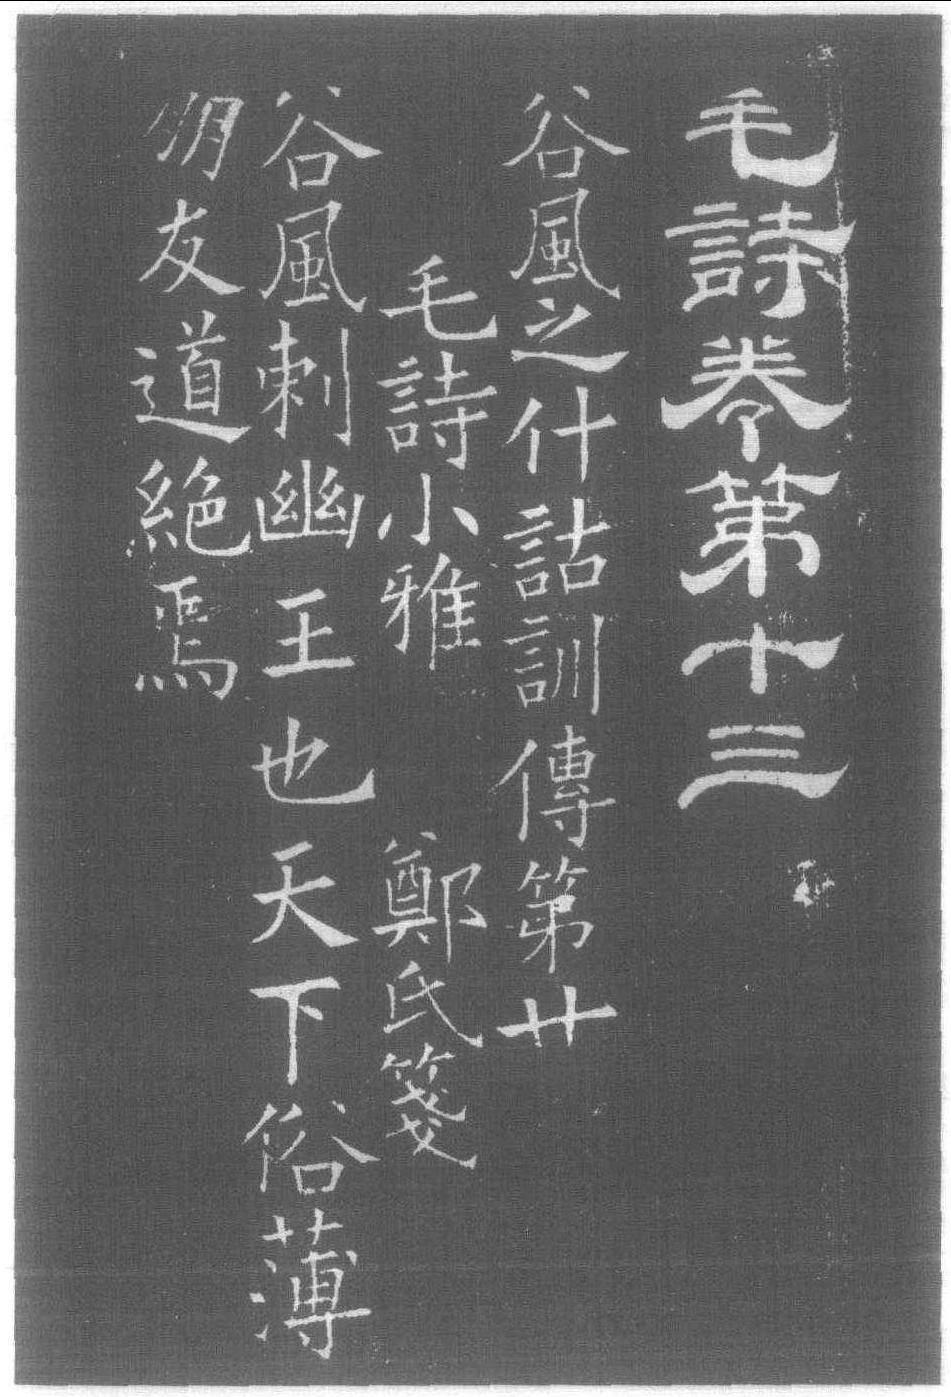 毛詩卷第十三
谷風之什詁訓傳第廿
毛詩小雅 鄭氏箋
谷風刺幽王也天下俗薄
朋友道絕焉